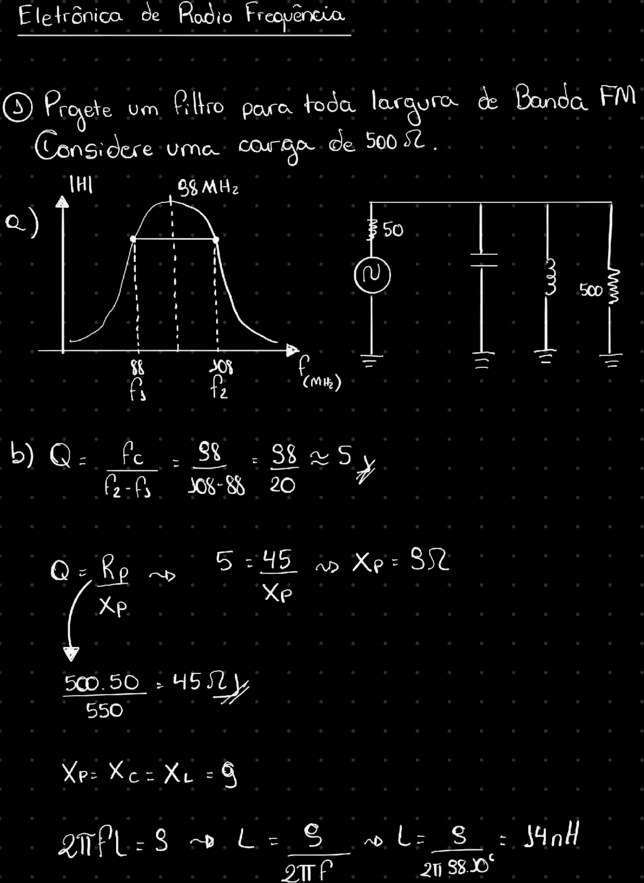 Eletrônica de Radio Frequência
① Projete um filtro para toda largura de Banda FM
Considere uma carga de 500 Ω.
a)
|H|
98 MHz
88
f₁
108
f₂
f (MHz)
50
500
b) Q = fc / (f₂ - f₁) = 98 / (108 - 88) = 98 / 20 ≈ 5
Q = Rp / Xp ⇝ 5 = 45 / Xp ⇝ Xp = 9Ω
500.50 / 550 = 45 Ω
Xp = Xc = XL = 9
2πfL = 9 ⇝ L = 9 / 2πf ⇝ L = 9 / 2π 98.10⁶ = 14nH